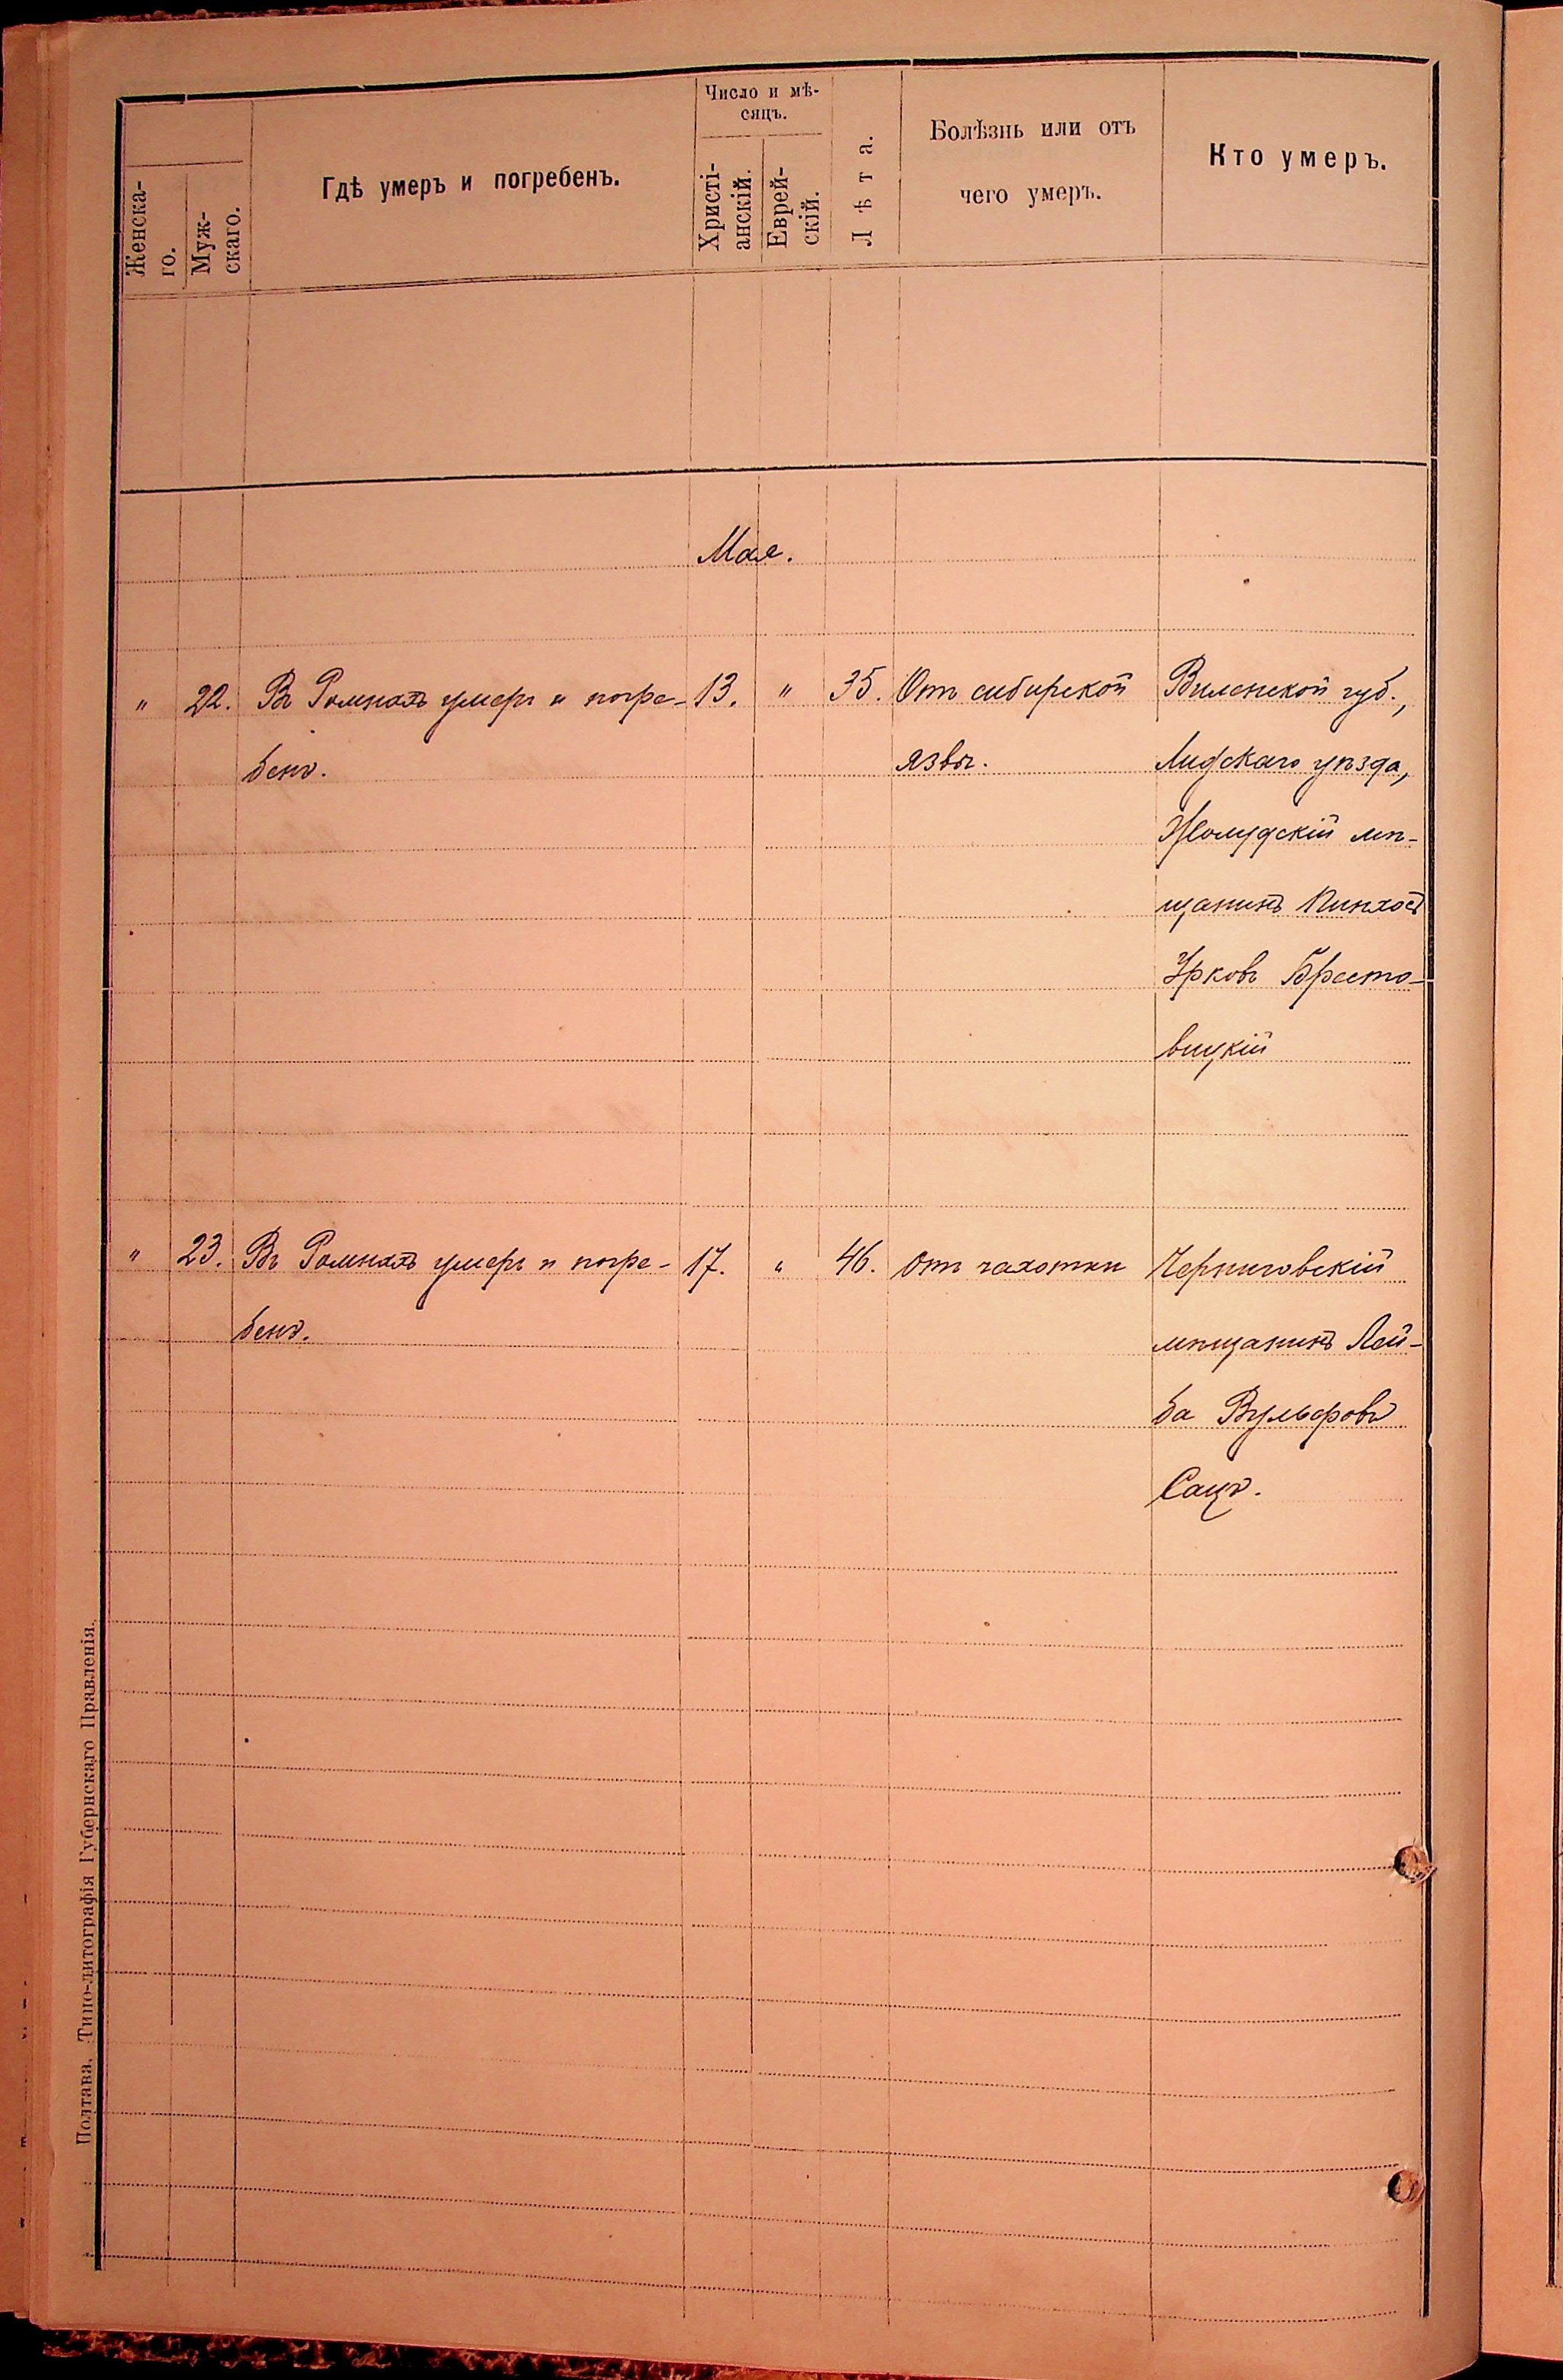 Женска-
го.
Муж-
скаго.
Гдѣ умеръ и погребенъ.
Число и мѣ-
сяцъ.
Христі-
анскій.
Еврей-
скій.
Лѣта.
Болѣзнь или отъ
чего умеръ.
Кто умеръ.
Мая.
" 22. Въ Ромнахъ умеръ и погре- 13. " 35. Отъ сибирской Виленской губ.,
бенъ. язвы. Лидскаго уѣзда,
Жолудскій мѣ-
щанинъ Пинхосъ
Ірковъ Бресто-
вицкій
" 23. Въ Ромнахъ умеръ и погре- 17. " 46. Отъ чахотки Черниговскій
бенъ. мѣщанинъ Лей-
ба Вульфовъ
Сацъ.
Полтава, Типо-литографія Губернскаго Правленія.